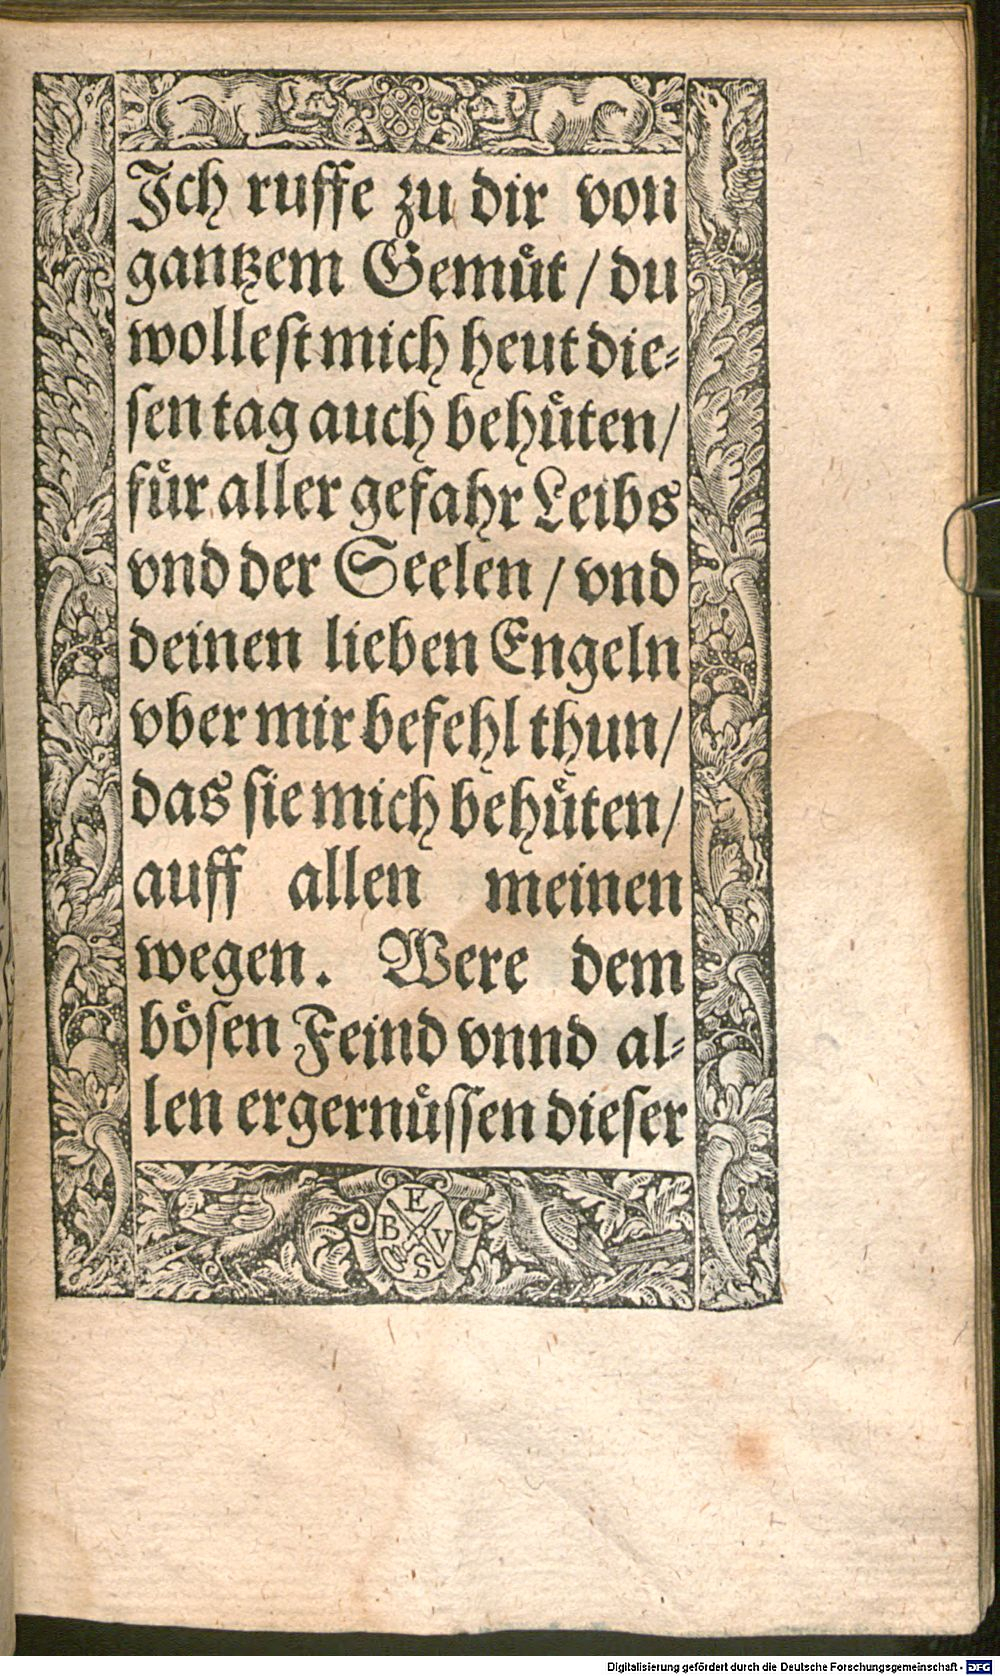 Ich ruffe zu dir von
gantzem Gemuͤt / du
wolleſt mich heut die⸗
ſen tag auch behuͤten /
fuͤr aller gefahr Leibs
vnd der Seelen / vnd
deinen lieben Engeln
vber mir befehl thun /
das ſie mich behuͤten /
auff allen meinen
wegen. Were dem
boͤſen Feind vnnd al⸗
len ergernuͤſſen dieſer
E
B V
S
Digitalisierung gefördert durch die Deutsche Forschungsgemeinschaft - DFG